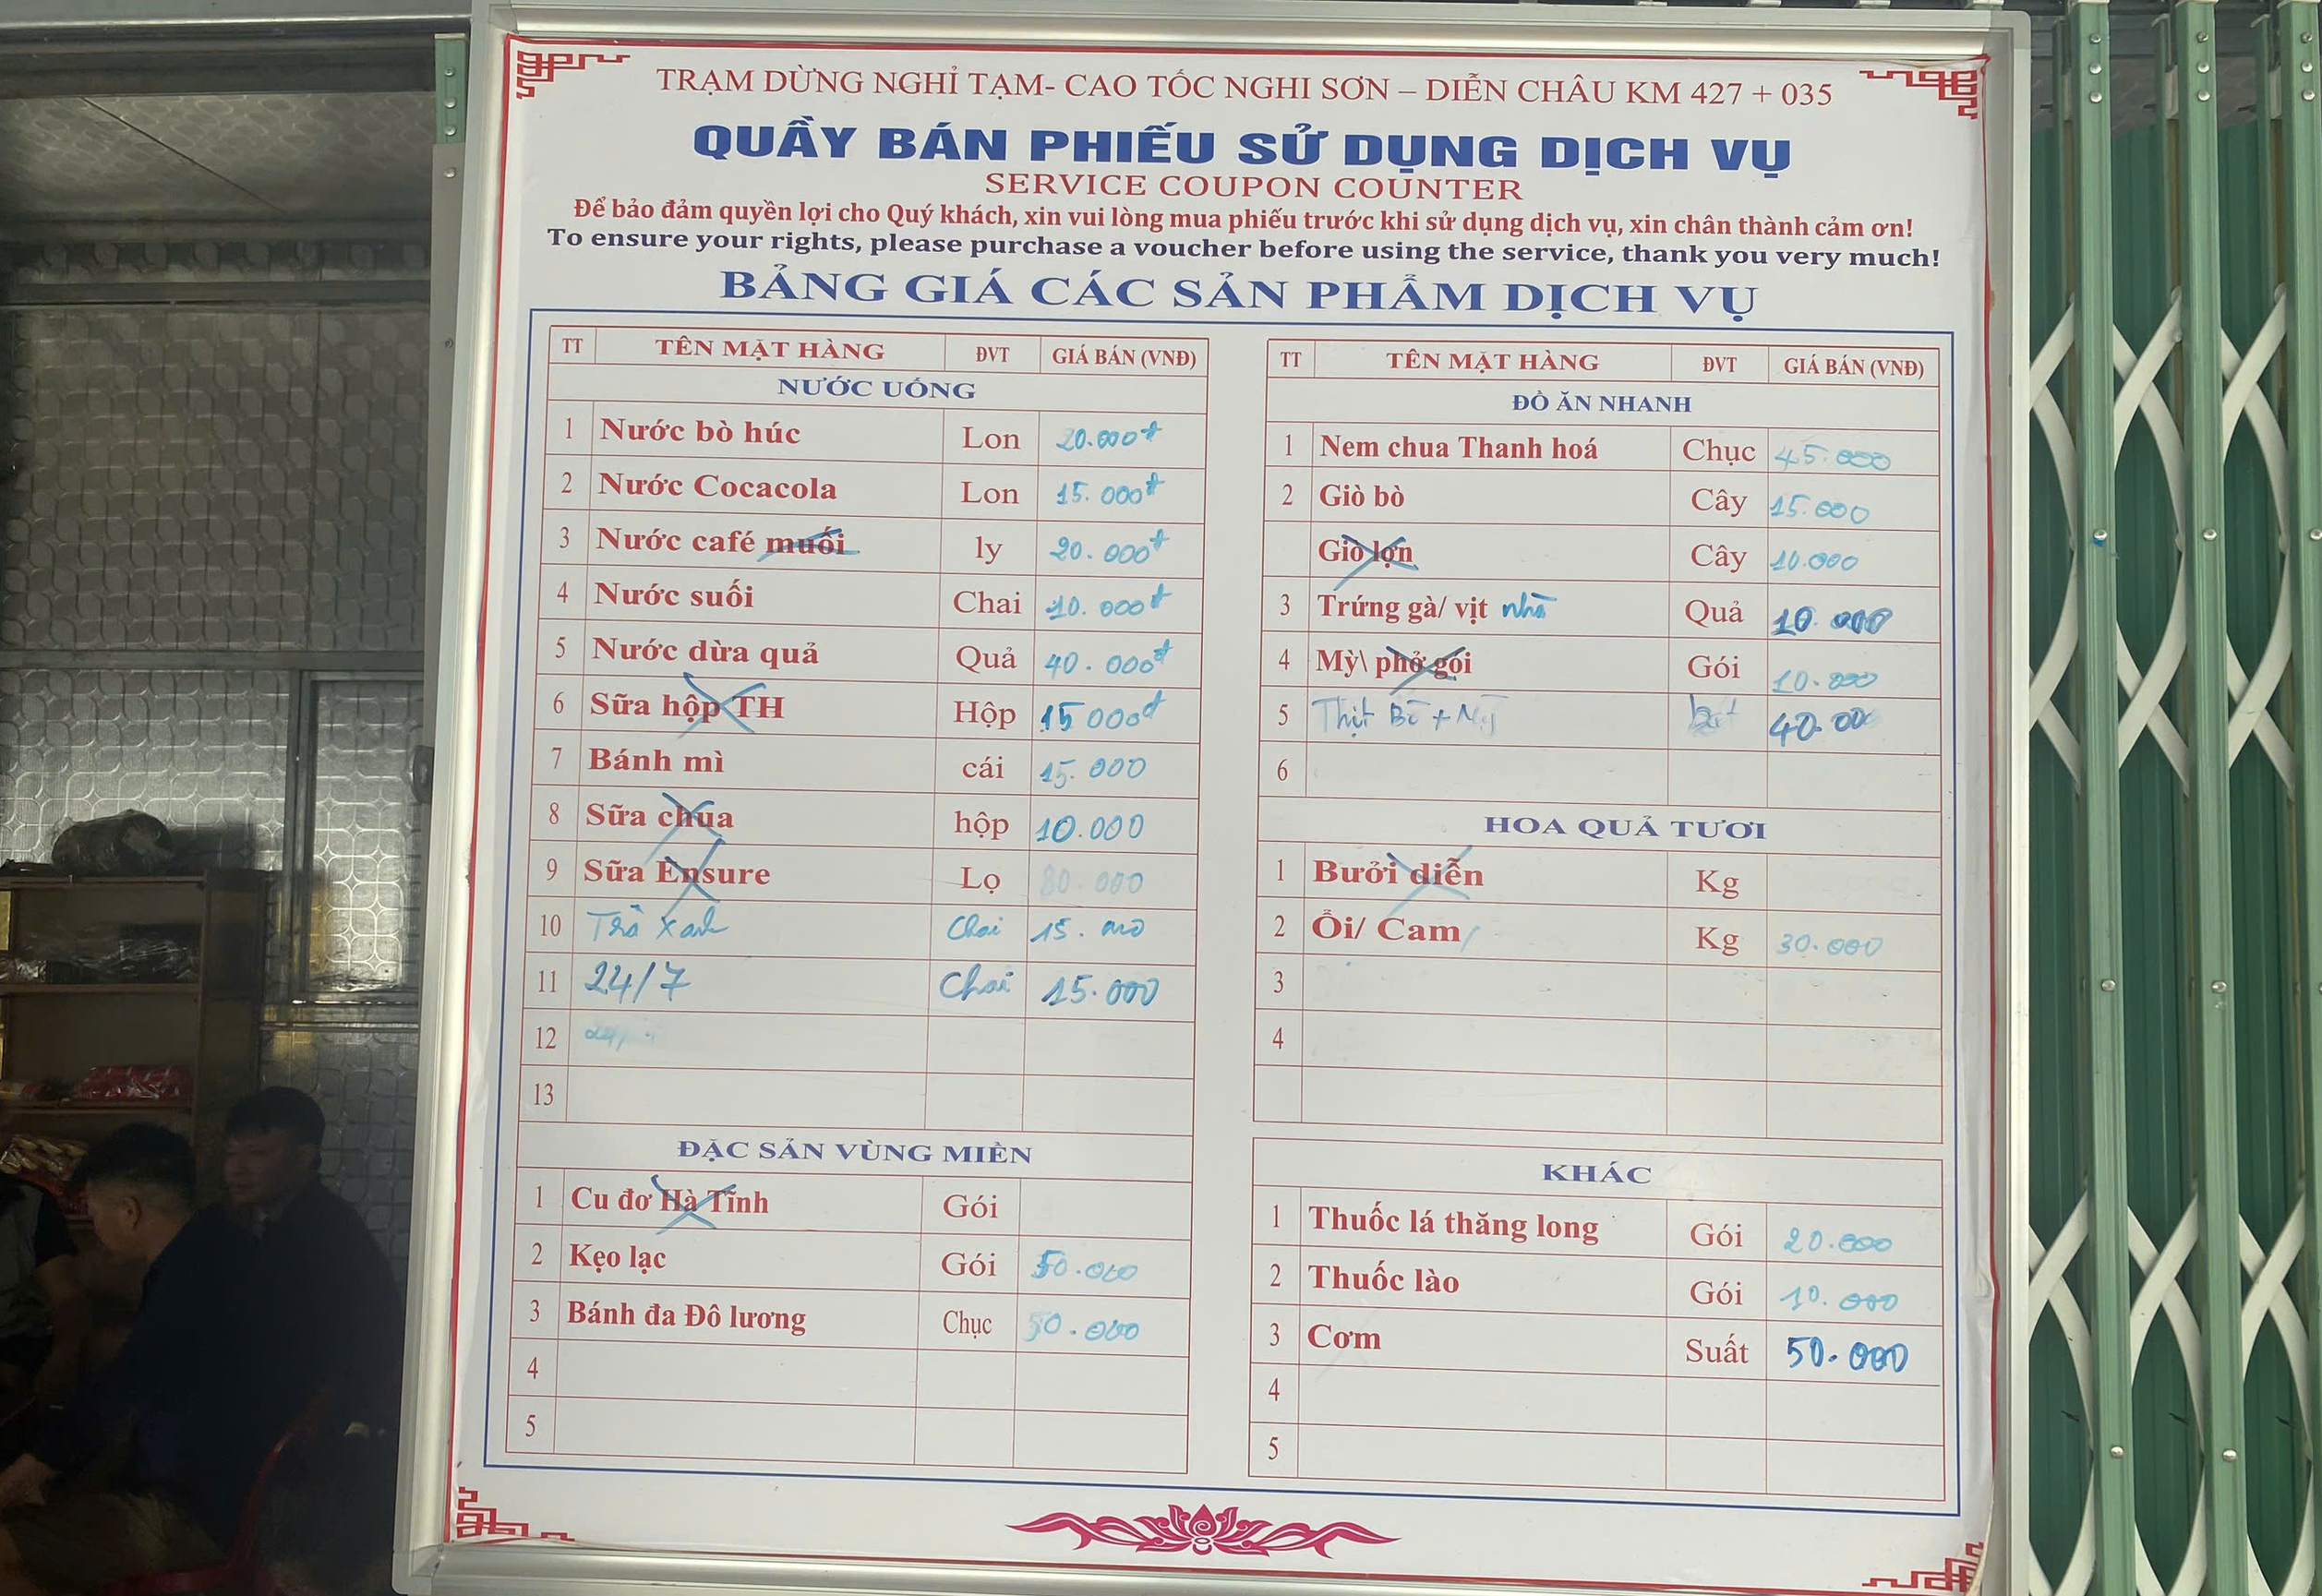 TRẠM DỪNG NGHỈ TẠM- CAO TỐC NGHI SƠN – DIỄN CHÂU KM 427 + 035
QUẦY BÁN PHIẾU SỬ DỤNG DỊCH VỤ
SERVICE COUPON COUNTER
Để bảo đảm quyền lợi cho Quý khách, xin vui lòng mua phiếu trước khi sử dụng dịch vụ, xin chân thành cảm ơn!
To ensure your rights, please purchase a voucher before using the service, thank you very much!
BẢNG GIÁ CÁC SẢN PHẨM DỊCH VỤ
TT TÊN MẶT HÀNG ĐVT GIÁ BÁN (VNĐ)
NƯỚC UỐNG
1 Nước bò húc Lon 20.000đ
2 Nước Cocacola Lon 15.000đ
3 Nước café muối ly 20.000đ
4 Nước suối Chai 10.000đ
5 Nước dừa quả Quả 40.000đ
6 Sữa hộp TH Hộp 15000đ
7 Bánh mì cái 15.000
8 Sữa chua hộp 10.000
9 Sữa Ensure Lọ 80.000
10 Trà xanh Chai 15.000
11 24/7 Chai 15.000
12
13
ĐẶC SẢN VÙNG MIỀN
1 Cu đơ Hà Tĩnh Gói
2 Kẹo lạc Gói 50.000
3 Bánh đa Đô lương Chục 50.000
4
5
TT TÊN MẶT HÀNG ĐVT GIÁ BÁN (VNĐ)
ĐỒ ĂN NHANH
1 Nem chua Thanh hoá Chục 45.000
2 Giò bò Cây 15.000
Giò lợn Cây 10.000
3 Trứng gà/ vịt Quả 10.000
4 Mỳ\ phở gói Gói 10.000
5 Thịt Bò + Mỳ 40.000
6
HOA QUẢ TƯƠI
1 Bưởi diễn Kg
2 Ổi/ Cam Kg 30.000
3
4
KHÁC
1 Thuốc lá thăng long Gói 20.000
2 Thuốc lào Gói 10.000
3 Cơm Suất 50.000
4
5